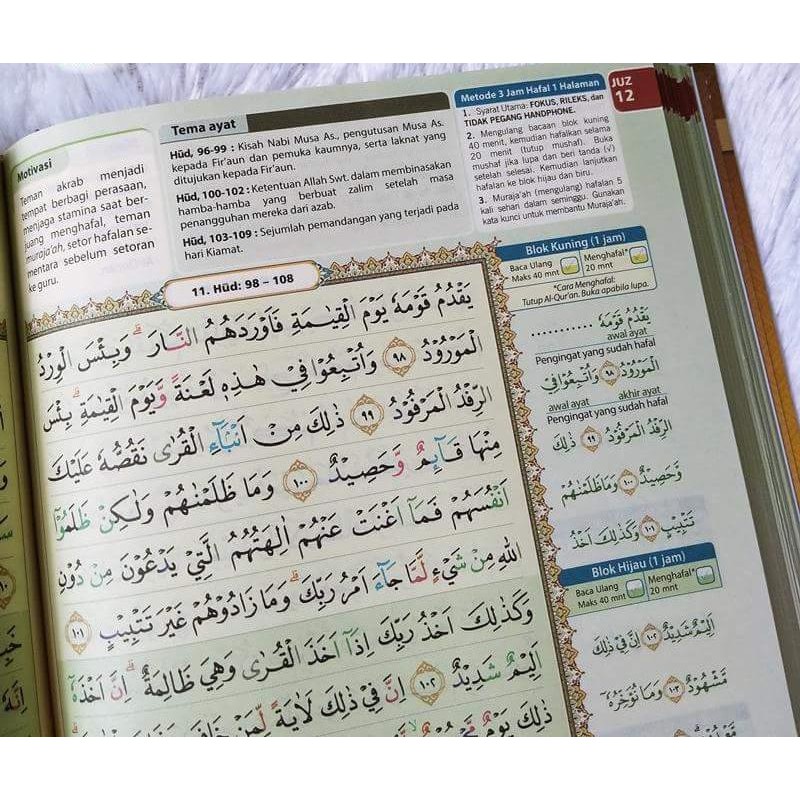 Motivasi
Teman akrab menjadi
tempat berbagi perasaan,
menjaga stamina saat ber-
juang menghafal, teman
muraja'ah, setor hafalan se-
mentara sebelum setoran
ke guru.
Tema ayat
Hūd, 96-99 : Kisah Nabi Musa As., pengutusan Musa As.
kepada Fir'aun dan pemuka kaumnya, serta laknat yang
ditujukan kepada Fir'aun.
Hūd, 100-102 : Ketentuan Allah Swt. dalam membinasakan
hamba-hamba yang berbuat zalim setelah masa
penangguhan mereka dari azab.
Hūd, 103-109 : Sejumlah pemandangan yang terjadi pada
hari Kiamat.
Metode 3 Jam Hafal 1 Halaman
1. Syarat Utama: FOKUS, RILEKS, dan
TIDAK PEGANG HANDPHONE.
2. Mengulang bacaan blok kuning
40 menit, kemudian hafalkan selama
20 menit (tutup mushaf). Buka
mushaf jika lupa dan beri tanda (√)
setelah selesai. Kemudian lanjutkan
hafalan ke blok hijau dan biru.
3. Muraja'ah (mengulang) hafalan 5
kali sehari dalam seminggu. Gunakan
kata kunci untuk membantu Muraja'ah.
JUZ
12
11. Hūd: 98 – 108
يَقْدُمُ قَوْمَهٗ يَوْمَ الْقِيٰمَةِ فَاَوْرَدَهُمُ النَّارَ ۗ وَبِئْسَ الْوِرْدُ
الْمَوْرُوْدُ ٩٨ وَاُتْبِعُوْا فِيْ هٰذِهٖ لَعْنَةً وَّيَوْمَ الْقِيٰمَةِ ۗ بِئْسَ
الرِّفْدُ الْمَرْفُوْدُ ٩٩ ذٰلِكَ مِنْ اَنْۢبَاۤءِ الْقُرٰى نَقُصُّهٗ عَلَيْكَ
مِنْهَا قَاۤىِٕمٌ وَّحَصِيْدٌ ١٠٠ وَمَا ظَلَمْنٰهُمْ وَلٰكِنْ ظَلَمُوْٓا
اَنْفُسَهُمْ فَمَآ اَغْنَتْ عَنْهُمْ اٰلِهَتُهُمُ الَّتِيْ يَدْعُوْنَ مِنْ دُوْنِ
اللّٰهِ مِنْ شَيْءٍ لَّمَّا جَاۤءَ اَمْرُ رَبِّكَ ۗ وَمَا زَادُوْهُمْ غَيْرَ تَتْبِيْبٍ ١٠١
وَكَذٰلِكَ اَخْذُ رَبِّكَ اِذَآ اَخَذَ الْقُرٰى وَهِيَ ظَالِمَةٌ ۗ اِنَّ اَخْذَهٗٓ
اَلِيْمٌ شَدِيْدٌ ١٠٢ اِنَّ فِيْ ذٰلِكَ لَاٰيَةً لِّمَنْ خَافَ
ذٰلِكَ يَوْمٌ
Blok Kuning (1 jam)
Baca Ulang
Maks 40 mnt
Menghafal*
20 mnt
*Cara Menghafal:
Tutup Al-Qur'an. Buka apabila lupa.
يَقْدُمُ قَوْمَهٗ ...........
awal ayat
Pengingat yang sudah hafal
الْمَوْرُوْدُ ٩٨ وَاُتْبِعُوْا فِيْ
awal ayat akhir ayat
Pengingat yang sudah hafal
الرِّفْدُ الْمَرْفُوْدُ ٩٩ ذٰلِكَ
وَّحَصِيْدٌ ١٠٠ وَمَا ظَلَمْنٰهُمْ
تَتْبِيْبٍ ١٠١ وَكَذٰلِكَ اَخْذُ
Blok Hijau (1 jam)
Baca Ulang
Maks 40 mnt
Menghafal*
20 mnt
اَلِيْمٌ شَدِيْدٌ ١٠٢ اِنَّ فِيْ ذٰلِكَ
مَّشْهُوْدٌ ١٠٣ وَمَا نُؤَخِّرُهٗٓ